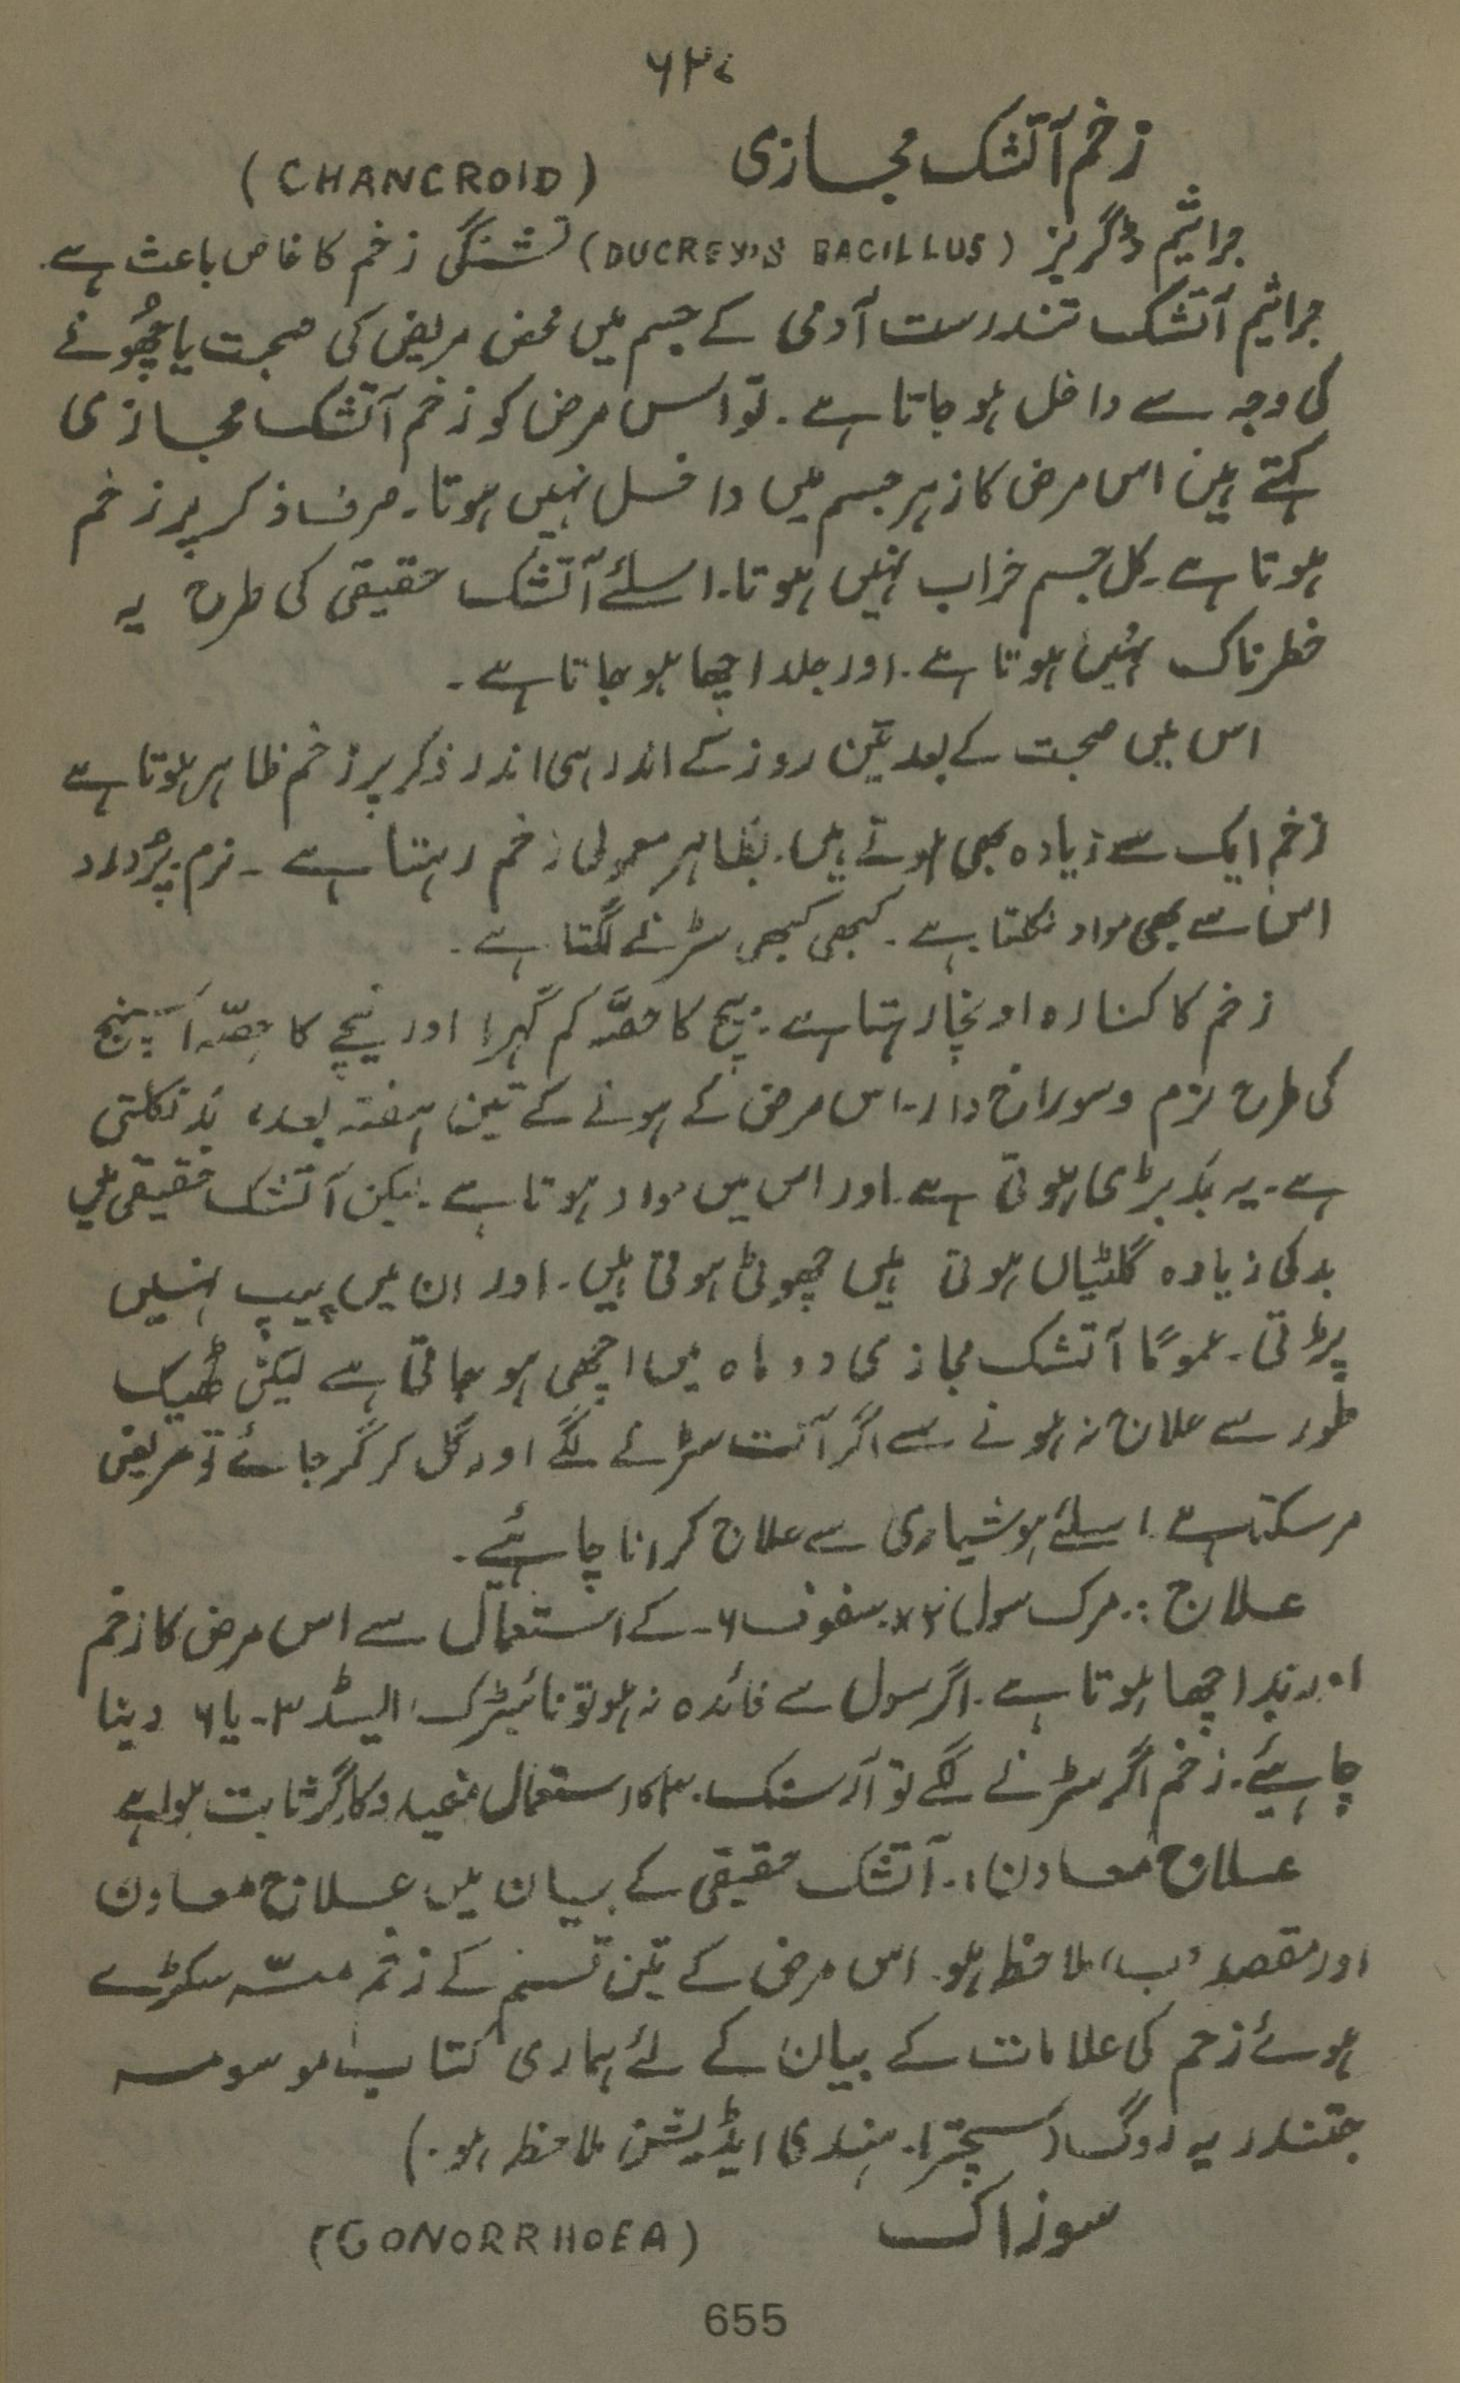 ۶۳۷
زخم آتشک مجازی (CHANCROID)
جراثیم ڈگریز (DUCREY'S BACILLUS) تشنگی زخم کا خاص باعث ہے۔
جراثیم آتشک تندرست آدمی کے جسم میں محض مریض کی صحبت یا چھُونے
کی وجہ سے داخل ہو جاتا ہے۔ تو اس مرض کو زخم آتشک مجازی
کہتے ہیں اس مرض کا زہر جسم میں داخل نہیں ہوتا۔ صرف ذکر پر زخم
ہوتا ہے۔ کل جسم خراب نہیں ہوتا۔ اسلئے آتشک حقیقی کی طرح یہ
خطرناک نہیں ہوتا ہے۔ اور جلد اچھا ہو جاتا ہے۔
اس میں صحبت کے بعد تین روز کے اندر ہی اندر ذکر پر زخم ظاہر ہوتا ہے
زخم ایک سے زیادہ بھی ہوتے ہیں۔ بظاہر معمولی زخم رہتا ہے ۔ نرم پُردرد
اس سے بھی مواد نکلتا ہے۔ کبھی کبھی سڑنے لگتا ہے۔
زخم کا کنارہ اونچا رہتا ہے۔ بیچ کا حصّہ کم گہرا اور نیچے کا حِصّہ اسپنج
کی طرح نرم و سوراخ دار۔ اس مرض کے ہونے کے تین ہفتہ بعد، بَد نکلتی
ہے۔ یہ بَد بڑی ہوتی ہے۔ اور اس میں مواد ہوتا ہے۔ لیکن آتشک حقیقی میں
بد کی زیادہ گلٹیاں ہوتی ہیں چھوٹی ہوتی ہیں۔ اور ان میں پیپ نہیں
پڑتی۔ عموماً آتشک مجازی دو ماہ میں اچھی ہو جاتی ہے لیکن ٹھیک
طور سے علاج نہ ہونے سے اگر آنت سڑنے لگے اور گل کر گر جائے تو مریض
مر سکتا ہے۔ اسلئے ہوشیاری سے علاج کرانا چاہئیے۔
علاج :۔ مرک سول ۲x سفوف ۶۔ کے استعمال سے اس مرض کا زخم
اور بَد اچھا ہوتا ہے۔ اگر سول سے فائدہ نہ ہو تو نائیٹرک ایسڈ ۳۔ یا ۶ دینا
چاہئیے۔ زخم اگر سڑنے لگے تو آرسنک۔ ۳ کا استعمال مفید و کارگر ثابت ہوا ہے
علاج معاون:۔ آتشک حقیقی کے بیان میں علاج معاون
اور مقصد 'ب' ملاحظہ ہو۔ اس مرض کے تین قسم کے زخم مسّہ سکڑے
ہوئے زخم کی علامات کے بیان کے لئے ہماری کتاب موسومہ
جننندریہ روگ (سچتر)۔ ہندی ایڈیشن ملاحظہ ہو۔)
سوزاک (GONORRHOEA)
655